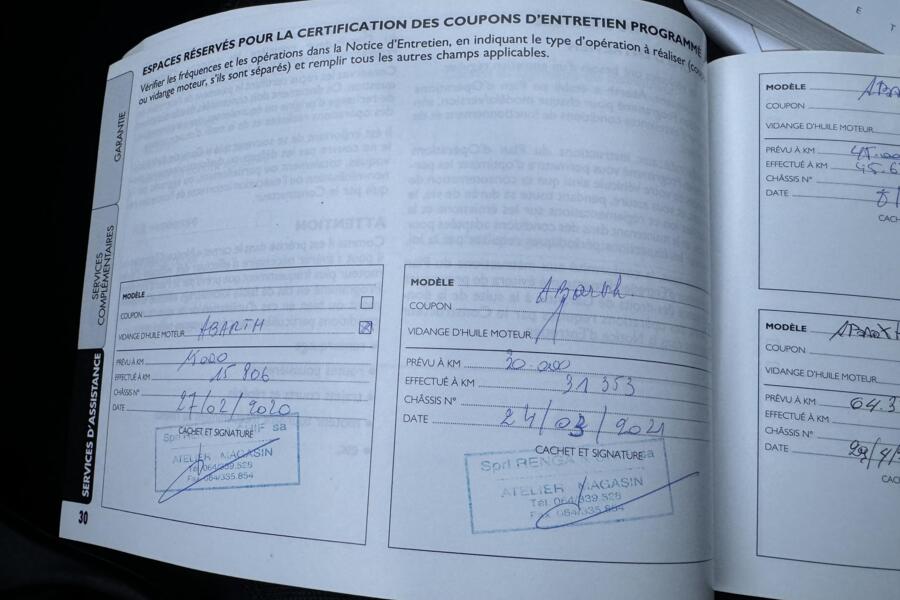 ESPACES RÉSERVÉS POUR LA CERTIFICATION DES COUPONS D'ENTRETIEN PROGRAMMÉ
Vérifier les fréquences et les opérations dans la Notice d'Entretien, en indiquant le type d'opération à réaliser
ou vidange moteur, s'ils sont séparés) et remplir tous les autres champs applicables.
GARANTIE
SERVICES
COMPLÉMENTAIRES
SERVICES D'ASSISTANCE
30
MODÈLE
COUPON
VIDANGE D'HUILE MOTEUR ABARTH
PRÉVU À KM
EFFECTUÉ À KM 15 806
CHÂSSIS N°
DATE 27/02/2020
CACHET ET SIGNATURE
sa
ATELIER MAGASIN
Tél. 064/339.526
Fax 064/335.854
MODÈLE Abarth
COUPON
VIDANGE D'HUILE MOTEUR
PRÉVU À KM 20.000
EFFECTUÉ À KM 31 353
CHÂSSIS N°
DATE 24/03/2021
CACHET ET SIGNATURE
Sprl sa
ATELIER MAGASIN
Tél. 064/339.526
Fax 064/335.854
MODÈLE
COUPON
VIDANGE D'HUILE MOTEUR
PRÉVU À KM
EFFECTUÉ À KM
CHÂSSIS N°
DATE
MODÈLE
COUPON
VIDANGE D'HUILE MOTEUR
PRÉVU À KM 64.3
EFFECTUÉ À KM
CHÂSSIS N°
DATE